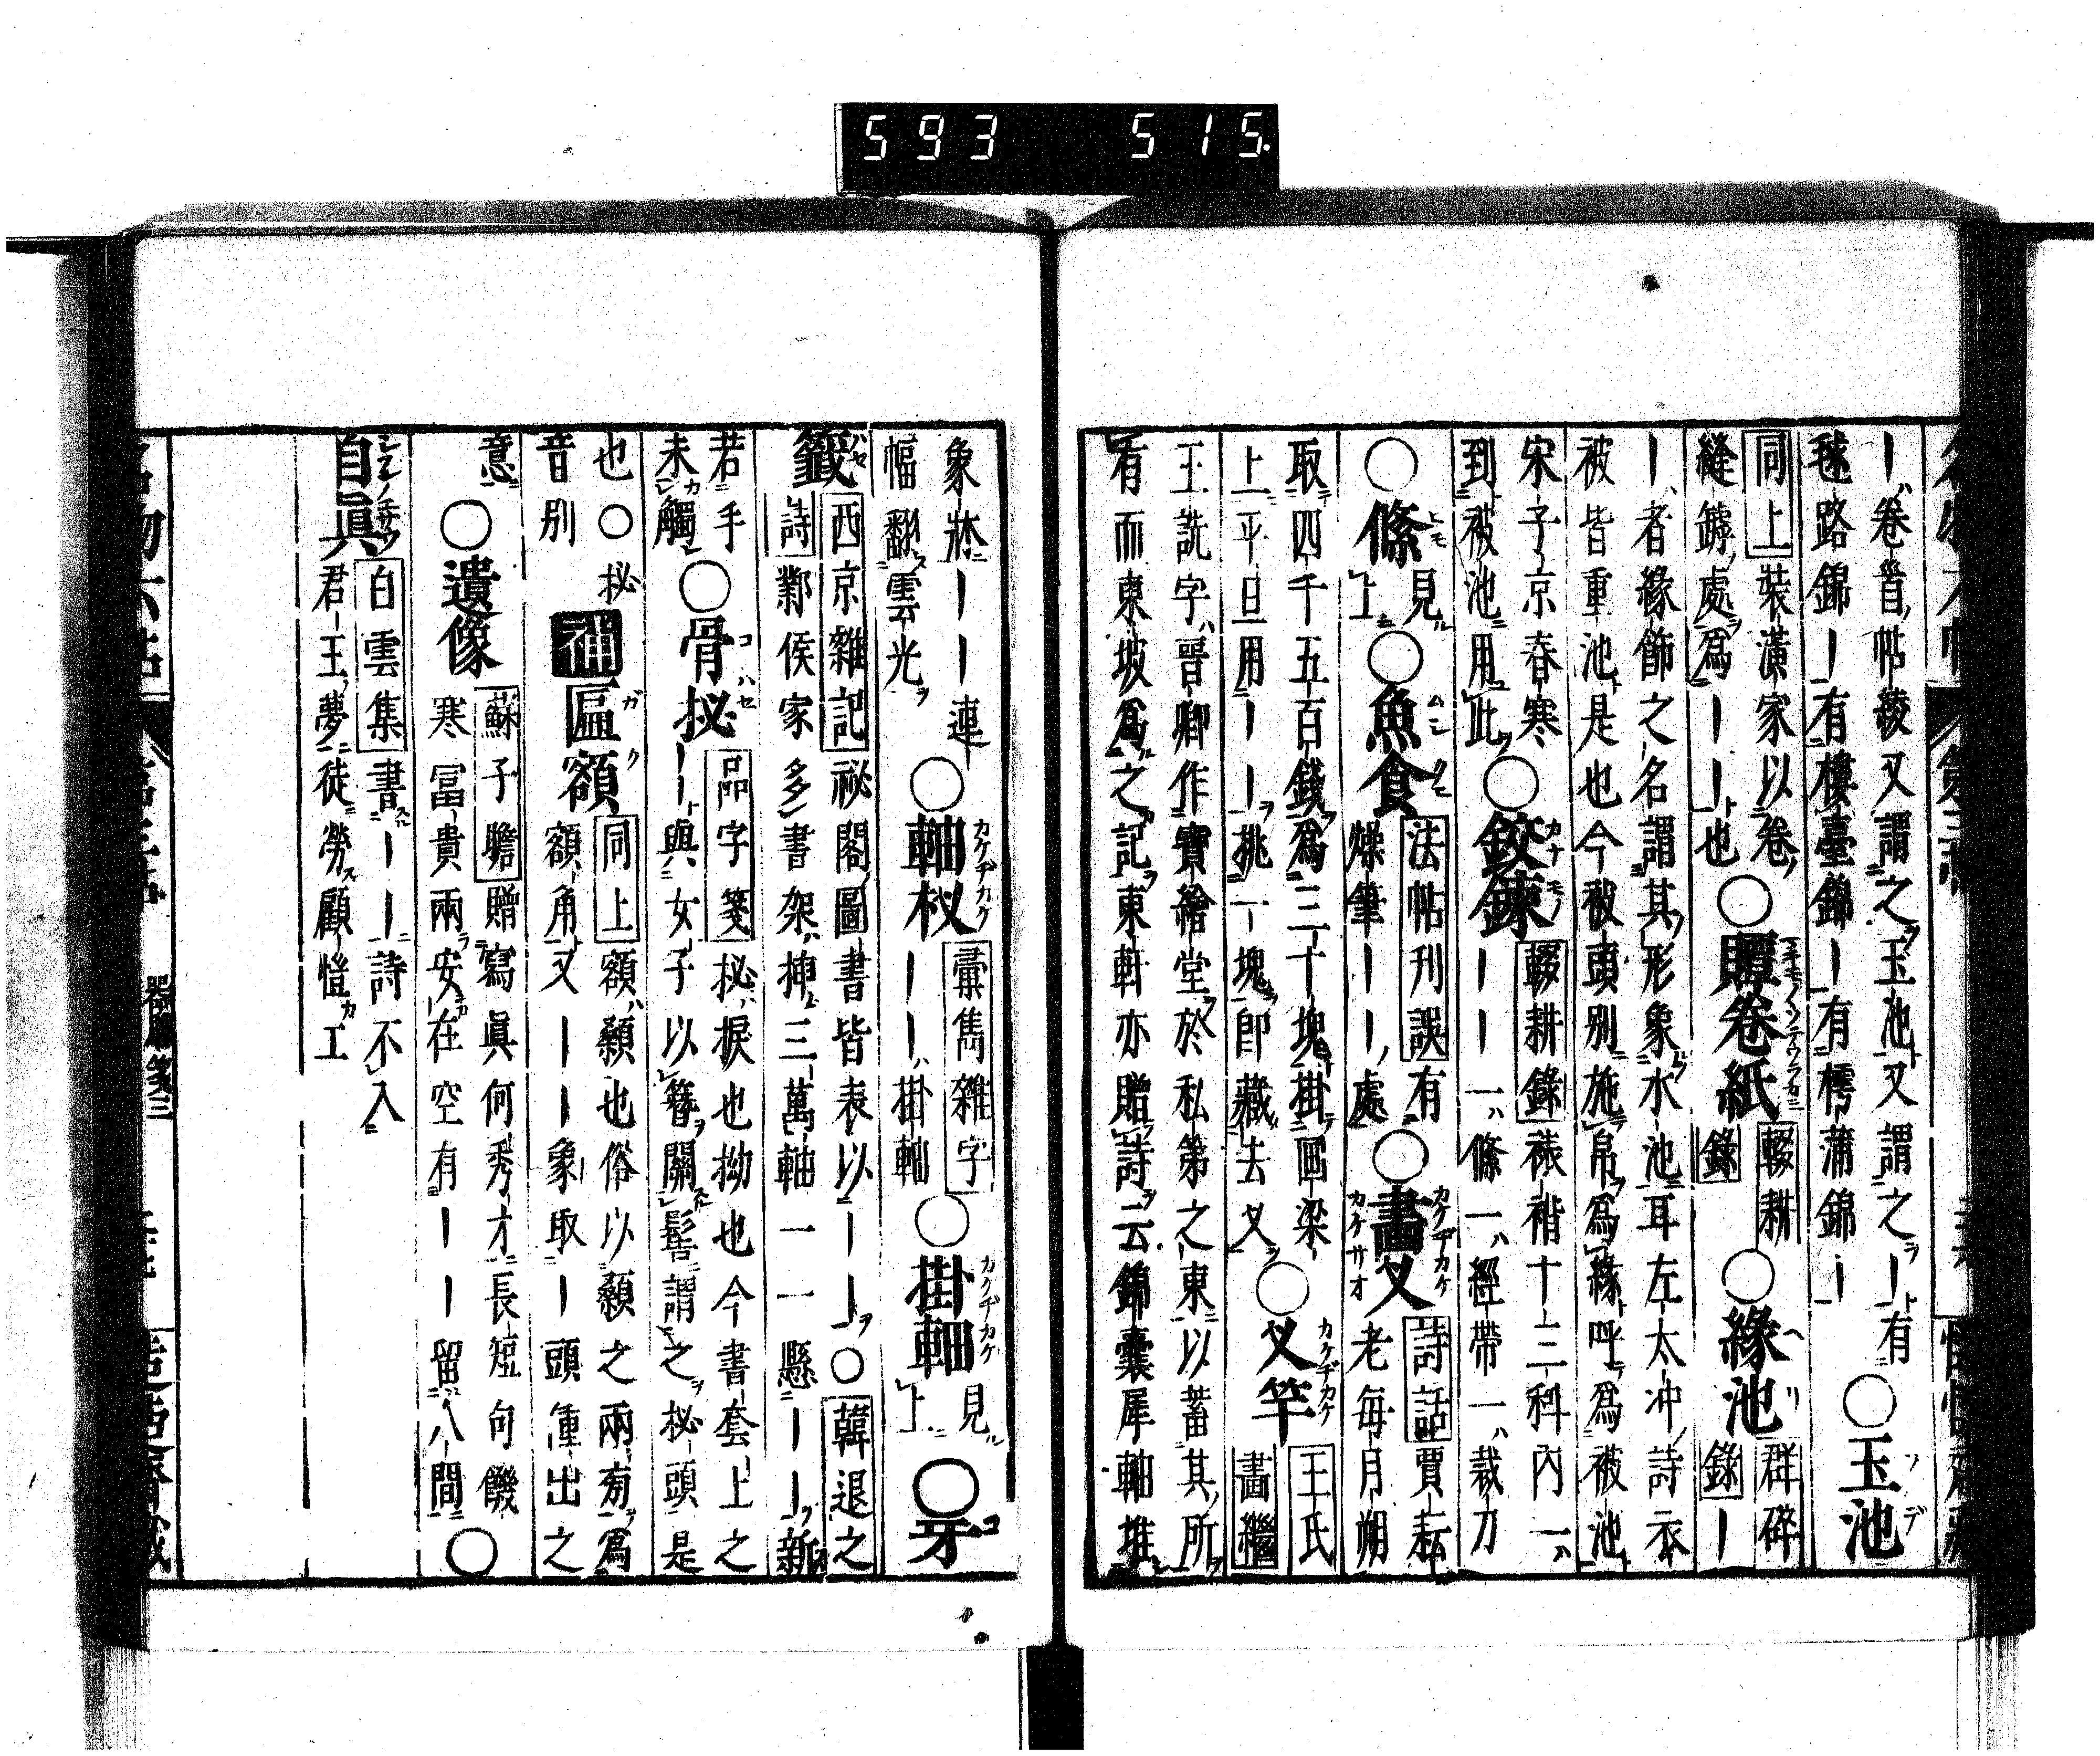 593 515.
｜卷首帖綾又謂之玉池又謂之｜有
毬路錦｜有樓臺錦｜有樗蒲錦｜
○玉池
同上裝潢家以卷
縫罅處爲｜｜也
○贉卷紙
輟耕
錄
○緣池
群碎
錄｜
｜者緣飾之名謂其形象水池耳左太冲詩衣
被皆重池是也今被頭別施帛爲緣呼爲被池
宋子京春寒
到被池用此
○鉸鍊
輟耕錄裱褙十三科內一
｜｜一絛一經帶一裁刀
○絛
見
上
○魚食
法帖刊誤有
燥筆｜｜處
○畫叉
詩話賈耘
老每月朔
取四千五百錢爲三十塊掛画梁
上平旦用｜｜挑一塊卽藏去叉
○叉竿
王氏
畫繼
王詵字晉卿作寶繪堂於私第之東以蓄其所
有而東坡爲之記東軒亦贈詩云錦囊犀軸堆
象牀｜｜連
幅翻雲光
○軸杈
彙雋雜字
｜｜掛軸
○掛軸
見
上
○牙
籤
西京雜記祕閣圖書皆表以｜｜○韓退之
詩鄴侯家多書架挿三萬軸一一懸｜｜新
若手
未觸
○骨柲
品字箋柲捩也拗也今書套上之
｜與女子以簪關髻謂之柲頭是
也○柲
音別
補
匾額
同上額顙也俗以顙之兩旁爲
額角又｜｜象取｜頭衝出之
意
○遺像
蘇子瞻贈寫眞何秀才長短句饑
寒富貴兩安在空有｜｜留人間
○
自眞
白雲集書｜｜詩不入
君王夢徒勞顧愷工